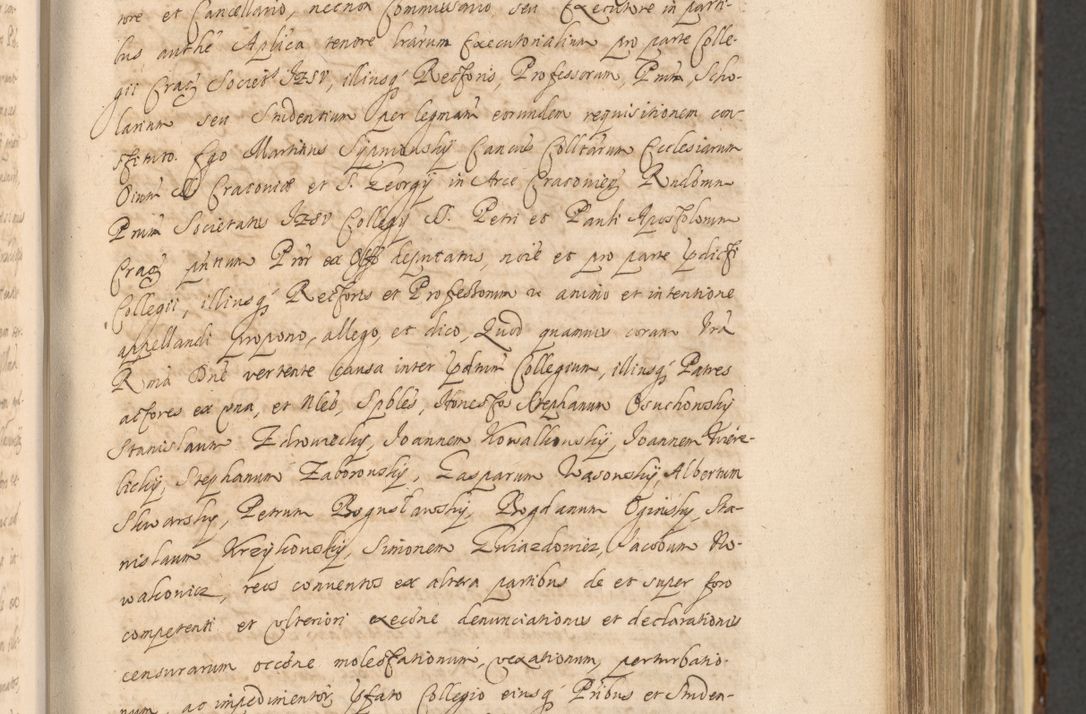 tore et Cancellario, necnon Commissario seu Executore in parti-
bus authẽ Aplica tenore lrarum Executorialium pro parte Colle-
gii Crac Societ JESV, illiusq Rectoris, Professorum, Prum, Scho-
larium seu Studentium per legmam eorundem requisitionem con-
stituto. Ego Martinus Cancus Colltarum Ecclesiarum
Oium SS Cracoviæ et S. Georgÿ in Arce Cracovien Rndomm
Prum Societatis JESV Collegÿ SS. Petri et Pauli Apostolorum
Crac pntium Prōr ex Offo deputatus, noiē et pro parte pdicti
Collegii, illiusq Rectoris et Professorum &c animo et intentione
appellandi propono, allego, et dico, Quod quamvis coram Vra
Rma Dne vertente causa inter pdtum Collegium, illiusq Patres
actores ex una, et Nleo, Spbles, Honestos Stephanum Osuchowskÿ
Stanislaum Zdrowieckÿ, Joannem Kowalkowskÿ, Joannem Kwere-
bickÿ, Stephanum Zaborowskÿ, Gasparum Wasowskÿ, Albertum
Skwarskÿ, Petrum Boguslawskÿ, Bogdanum Oginskÿ, Sta-
nislaum Krzÿkowskÿ, Simonem Gwiazdowicz, Jacobum No-
wakowicz, reos conventos ex altera partibus de et super foro
competenti et ulteriori execōne denunciationis et declarationis
censurarum occōne molestationum, vexationum, perturbatio-
num, ac impedimentor pfato Collegio eiusq Pribus et Studen-